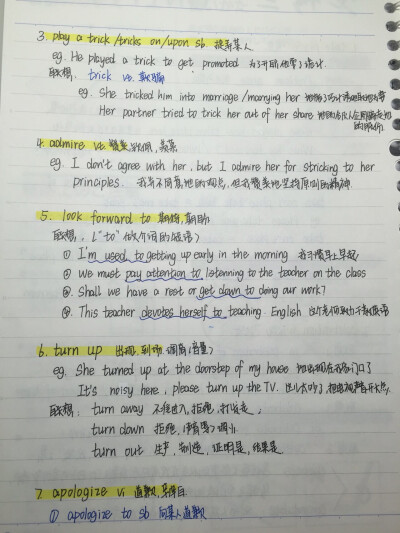 3. play a trick/tricks on/upon sb 捉弄某人
eg. He played a trick to get promoted 为了升职他耍了诡计.
联想: trick vt. 欺骗
eg. She tricked him into marriage/marrying her
Her partner tried to trick her out of her share
4. admire vt. 赞美, 钦佩, 羡慕
eg. I don't agree with her, but I admire her for stricking to her
principles. 我并不同意她的观点, 但我赞美她坚持原则的精神.
5. look forward to 期待, 期盼
联想: ("to" 做介词的短语)
① I'm used to getting up early in the morning 我习惯早上早起
② We must pay attention to listenning to the teacher on the class
③. Shall we have a rest or get down to doing our work?
④. This teacher devotes herself to teaching. English 这个老师致力于教英语
6. turn up 出现, 到场, 调高(音量)
eg. She turned up at the doorstep of my house 她出现在我家门口了
It's noisy here, please turn up the TV. 这儿太吵了, 把电视声音开大点.
联想: turn away 不准进入, 拒绝, 打发走;
turn down 拒绝, (音量)调小
turn out 生产, 制造, 证明是, 结果是
7. apologize vi 道歉, 辩白
① apologize to sb 向某人道歉